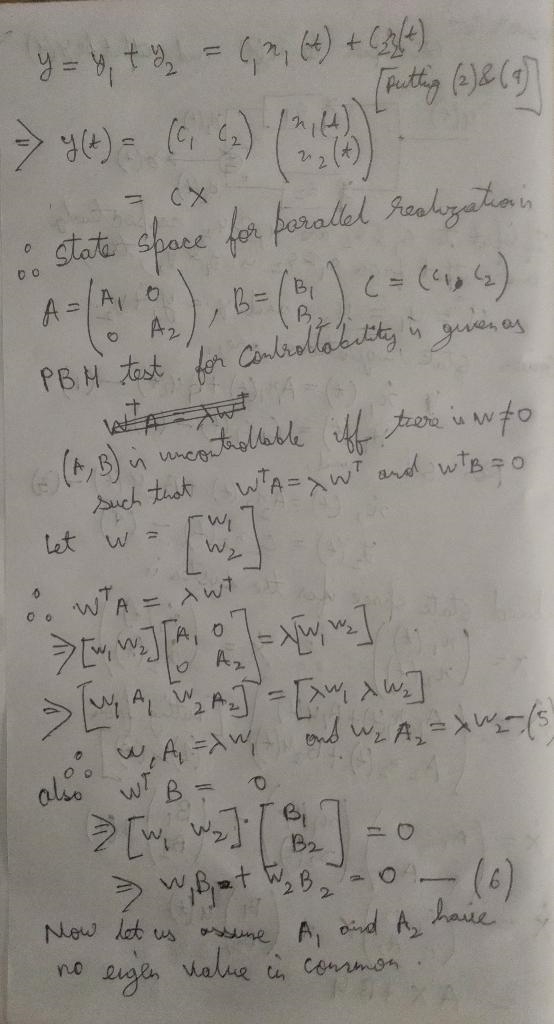 y = y₁ + y₂ = C₁x₁(t) + C₂x₂(t)
[Putting (2) & (4)]
⇒ y(t) = (C₁ C₂) (x₁(t)
x₂(t))
= CX
∴ State space for parallel realization is
A = (A₁ 0
0 A₂), B = (B₁
B₂) C = (C₁, C₂)
PBH test for controllability is given as
(A, B) is uncontrollable iff there is w ≠ 0
such that wᵀA = λwᵀ and wᵀB = 0
Let w = [w₁
w₂]
∴ wᵀA = λwᵀ
⇒ [w₁ w₂] [A₁ 0
0 A₂] = λ[w₁ w₂]
⇒ [w₁A₁ w₂A₂] = [λw₁ λw₂]
∴ w₁A₁ = λw₁ and w₂A₂ = λw₂ — (5)
also wᵀB = 0
⇒ [w₁ w₂]·[B₁
B₂] = 0
⇒ w₁B₁ + w₂B₂ = 0 — (6)
Now let us assume A₁ and A₂ have
no eigen value in common.